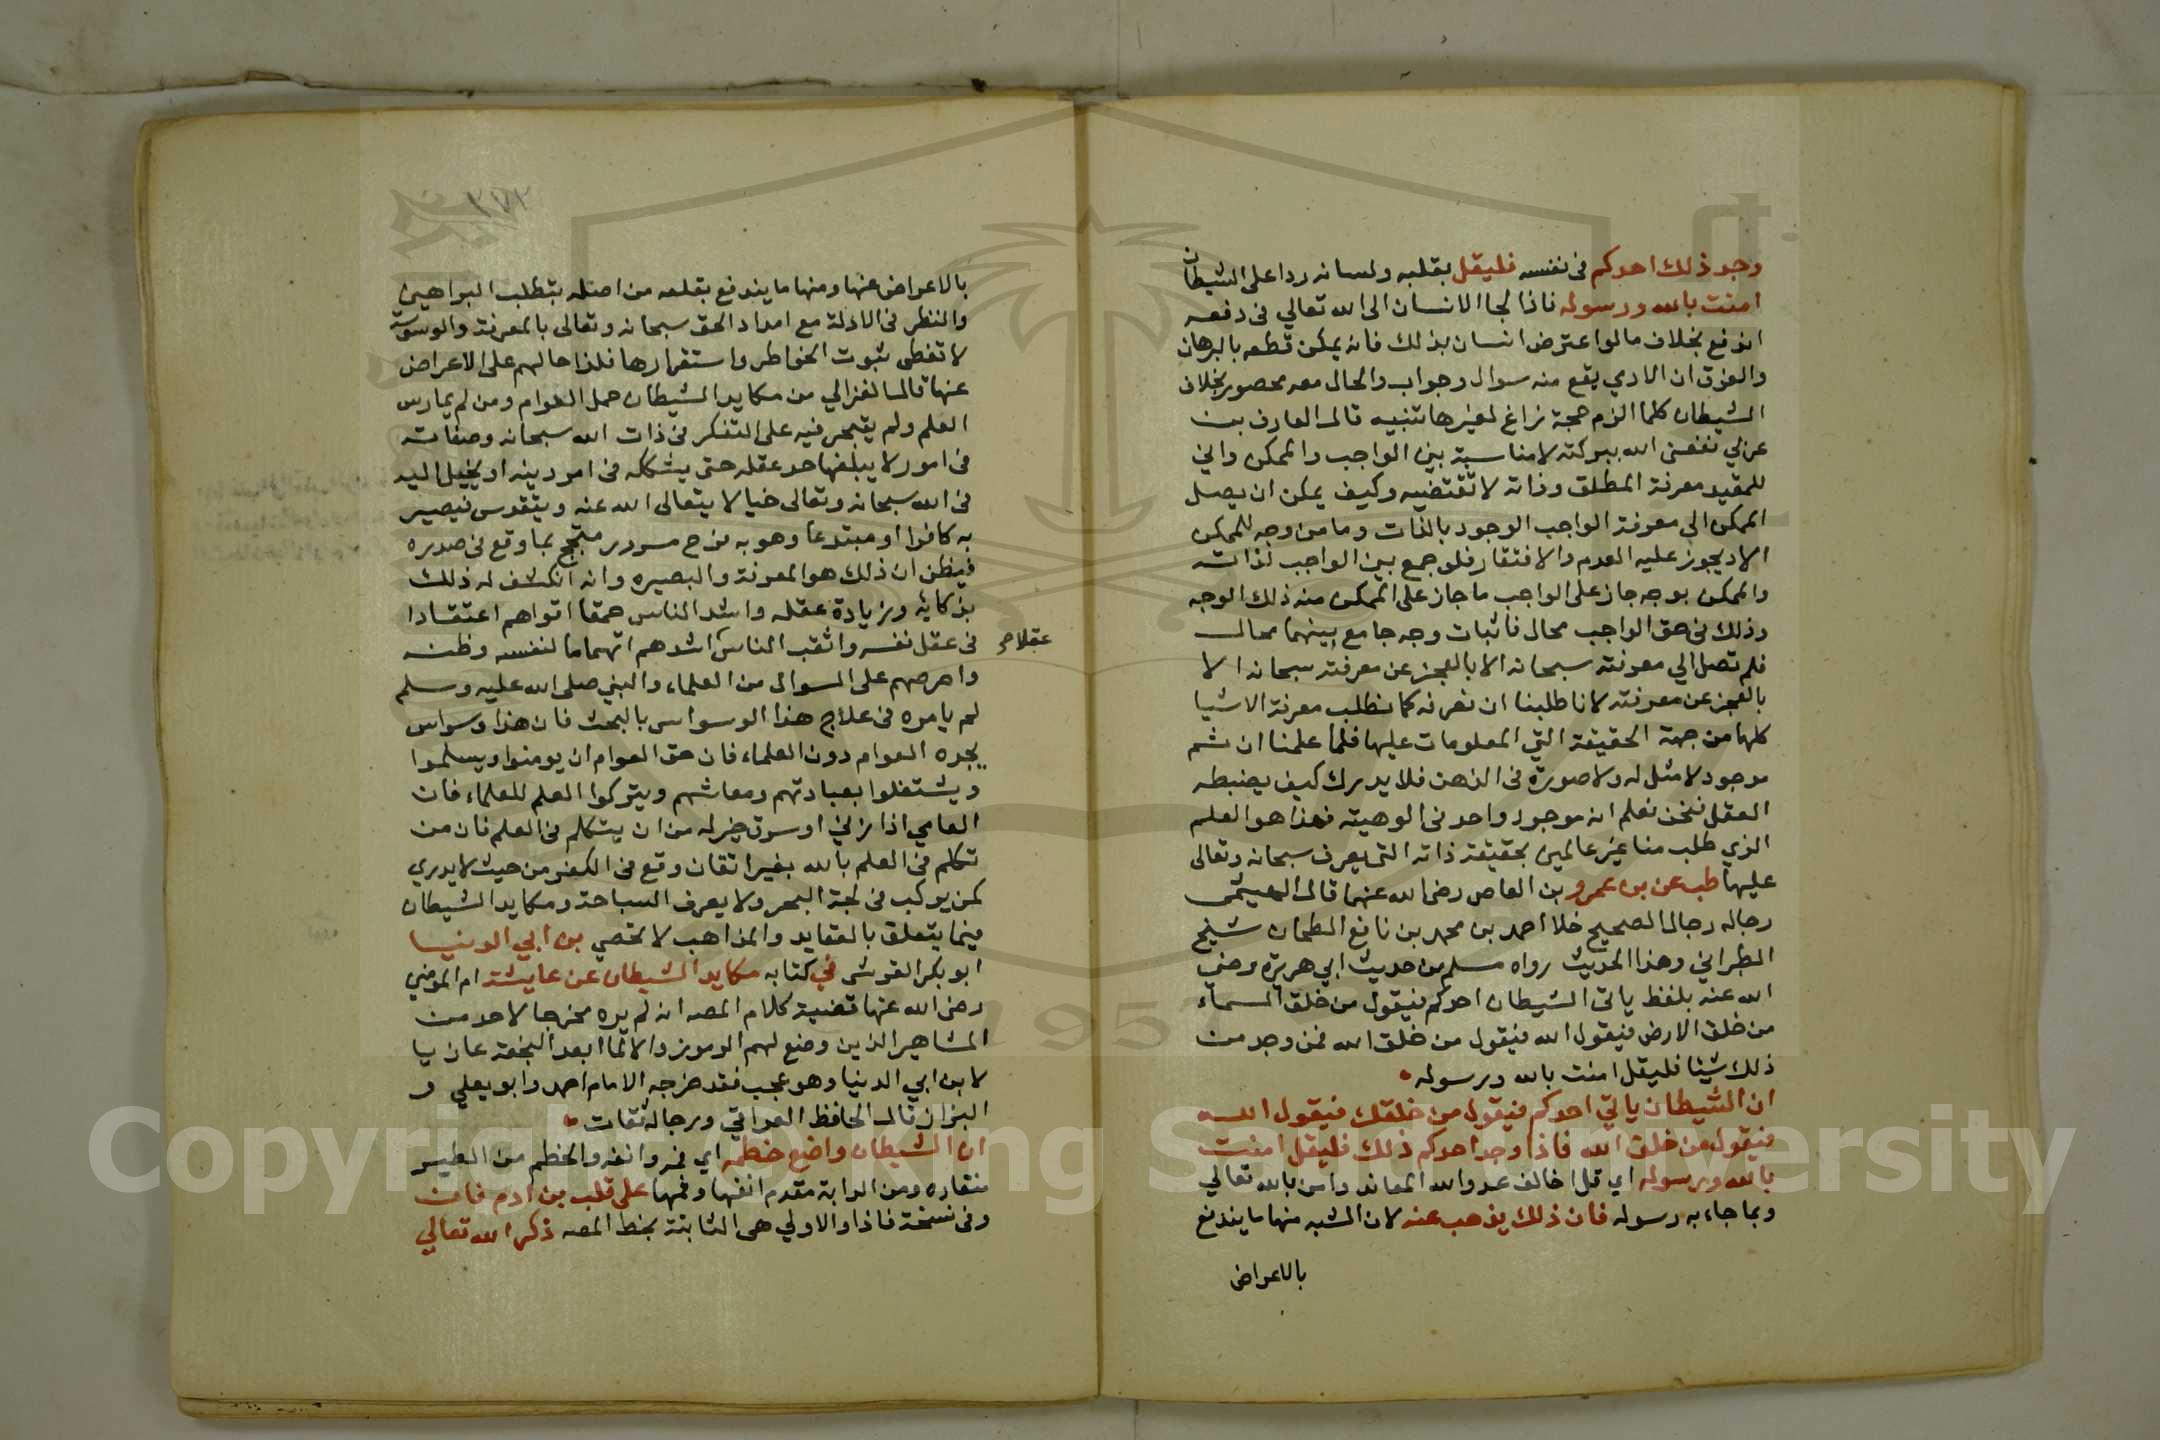 وجد ذلك احدكم فى نفسه فليقل بقلبه ولسانه ردا على الشيطان
امنت بالله ورسوله فاذا لجا الانسان الى الله تعالي فى دفعه
اندفع بخلاف ما لو اعترض انسان بذلك فانه يمكن قطعه بالبرهان
والفرق ان الادمي يقع منه سوال وجواب والحال معه محصور بخلاف
الشيطان كلما الزم حجة زاغ لغيرها تنبيه قال العارف بن
عربي نفعنى الله ببركته لا مناسبة بين الواجب والممكن واني
للمقيد معرفة المطلق وذاته لا تقتضيه وكيف يمكن ان يصل
الممكن الي معرفة الواجب الوجود بالذات وما من وجه للممكن
الا ديجوز عليه العدم والافتقار فلو جمع بين الواجب لذاته
والممكن بوجه جاز على الواجب ما جاز على الممكن منه ذلك الوجه
وذلك فى حق الواجب محال فاثبات وجه جامع بينهما محال
فلم تصل الي معرفته سبحانه الا بالعجز عن معرفته سبحانه الا
بالعجز عن معرفته لانا طلبنا ان نعرفه كما نطلب معرفة الاشيا
كلها من جهة الحقيقة التي المعلومات عليها فلما علمنا ان ثم
موجود لا مثل له ولا صورة فى الذهن فلا يدرك كيف يضبطه
العقل فنحن نعلم انه موجود واحد فى الوهيته فهذا هو العلم
الذي طلب منا غير عالمين بحقيقة ذاته التى يعرف سبحانه وتعالى
عليها طب عن بن عمرو بن العاص رضى الله عنهما قال الهيثمى
رجاله رجال الصحيح خلا احمد بن محمد بن نافع الطحان شيخ
الطبراني وهذا الحديث رواه مسلم من حديث ابي هريرة رضى
الله عنه بلفظ ياتى الشيطان احدكم فيقول من خلق السماء
من خلق الارض فيقول الله فيقول من خلق الله فمن وجد من
ذلك شيئا فليقل امنت بالله ورسوله
ان الشيطان ياتي احدكم فيقول من خلقك فيقول الله
فيقول من خلق الله فاذا وجد احدكم ذلك فليقل امنت
بالله ورسوله اي قل اخالف عدو الله المعاند وامن بالله تعالي
وبما جاء به رسوله فان ذلك يذهب عنه لان الشبه منها ما يندفع
بالاعراض
٣٧٢
بالاعراض عنها ومنها ما يندفع بقلعه من اصله بتطلب البراهين
والنظر فى الادلة مع امداد الحق سبحانه وتعالى بالمعرفة والوسوسة
لا تعطى ثبوت الخواطر واستقرارها فلذا حالهم على الاعراض
عنها قال الغزالي من مكايد الشيطان حمل العوام ومن لم يمارس
العلم ولم يتبحر فيه على التفكر فى ذات الله سبحانه وصفاته
فى امور لا يبلغها حد عقله حتى يشككه فى امر دينه او يخيل اليه
فى الله سبحانه وتعالى خيالا يتعالى الله عنه ويتقدس فيصير
به كافرا او مبتدعا وهو به فرح مسرور مبتجح بما وقع فى صدره
فيظن ان ذلك هو المعرفة والبصيره وانه انكشف له ذلك
بذكائه وزيادة عقله واشد الناس حمقا اقواهم اعتقادا
فى عقل نفسه واثقب الناس اشدهم اتهاما لنفسه وظنه
عقلا صح
واحرصهم على السوال من العلماء والنبي صلى الله عليه وسلم
لم يامره فى علاج هذا الوسواس بالبحث فان هذا وسواس
يجده العوام دون العلماء فان حق العوام ان يومنوا ويسلموا
ويشتغلوا بعبادتهم ومعاشهم ويتركوا العلم للعلماء فان
العامي اذا زني او سرق خير له من ان يتكلم فى العلم فان من
تكلم فى العلم بالله بغير اتقان وقع فى الكفر من حيث لا يدري
كمن يركب فى لجة البحر ولا يعرف السباحة ومكايد الشيطان
فيما يتعلق بالعقايد والمذاهب لا تحصي بن ابي الدنيا
ابو بكر القرشى في كتابه مكايد الشيطان عن عايشة ام المومنين
رضى الله عنها قضية كلام المصه انه لم يره مخرجا لاحد من
المشاهير الذين وضع لهم الرموز والا لما ابعد النجعة عازيا
لابن ابي الدنيا وهو عجب فقد خرجه الامام احمد وابو يعلي و
البزار قال الحافظ العراقي ورجاله ثقات
ان الشيطان واضع خطمه اي فمه وانفه والخطم من الطير
منقاره ومن الدابة مقدم انفها وفمها على قلب بن ادم فان
وفى نسخة فاذا والاولي هى الثابتة بخط المصه ذكر الله تعالي
Copyright © King Saud University
1957